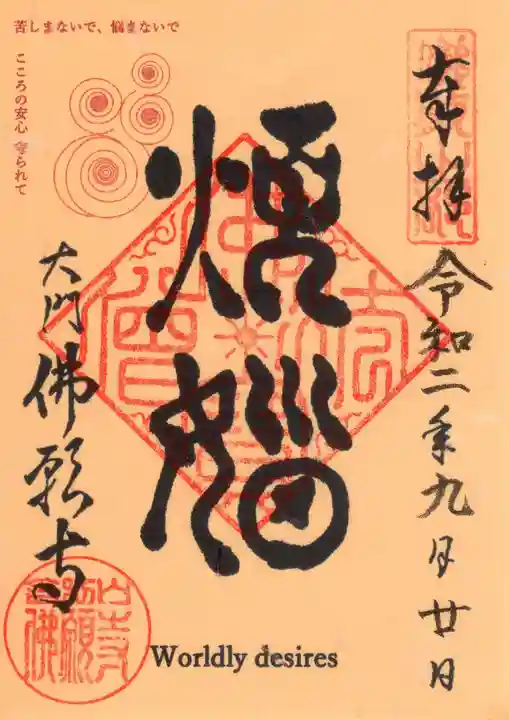 苦しまないで、悩まないで
こころの安心 守られて
奉拝
令和二年九月廿日
煩惱
大門 佛願寺
Worldly desires